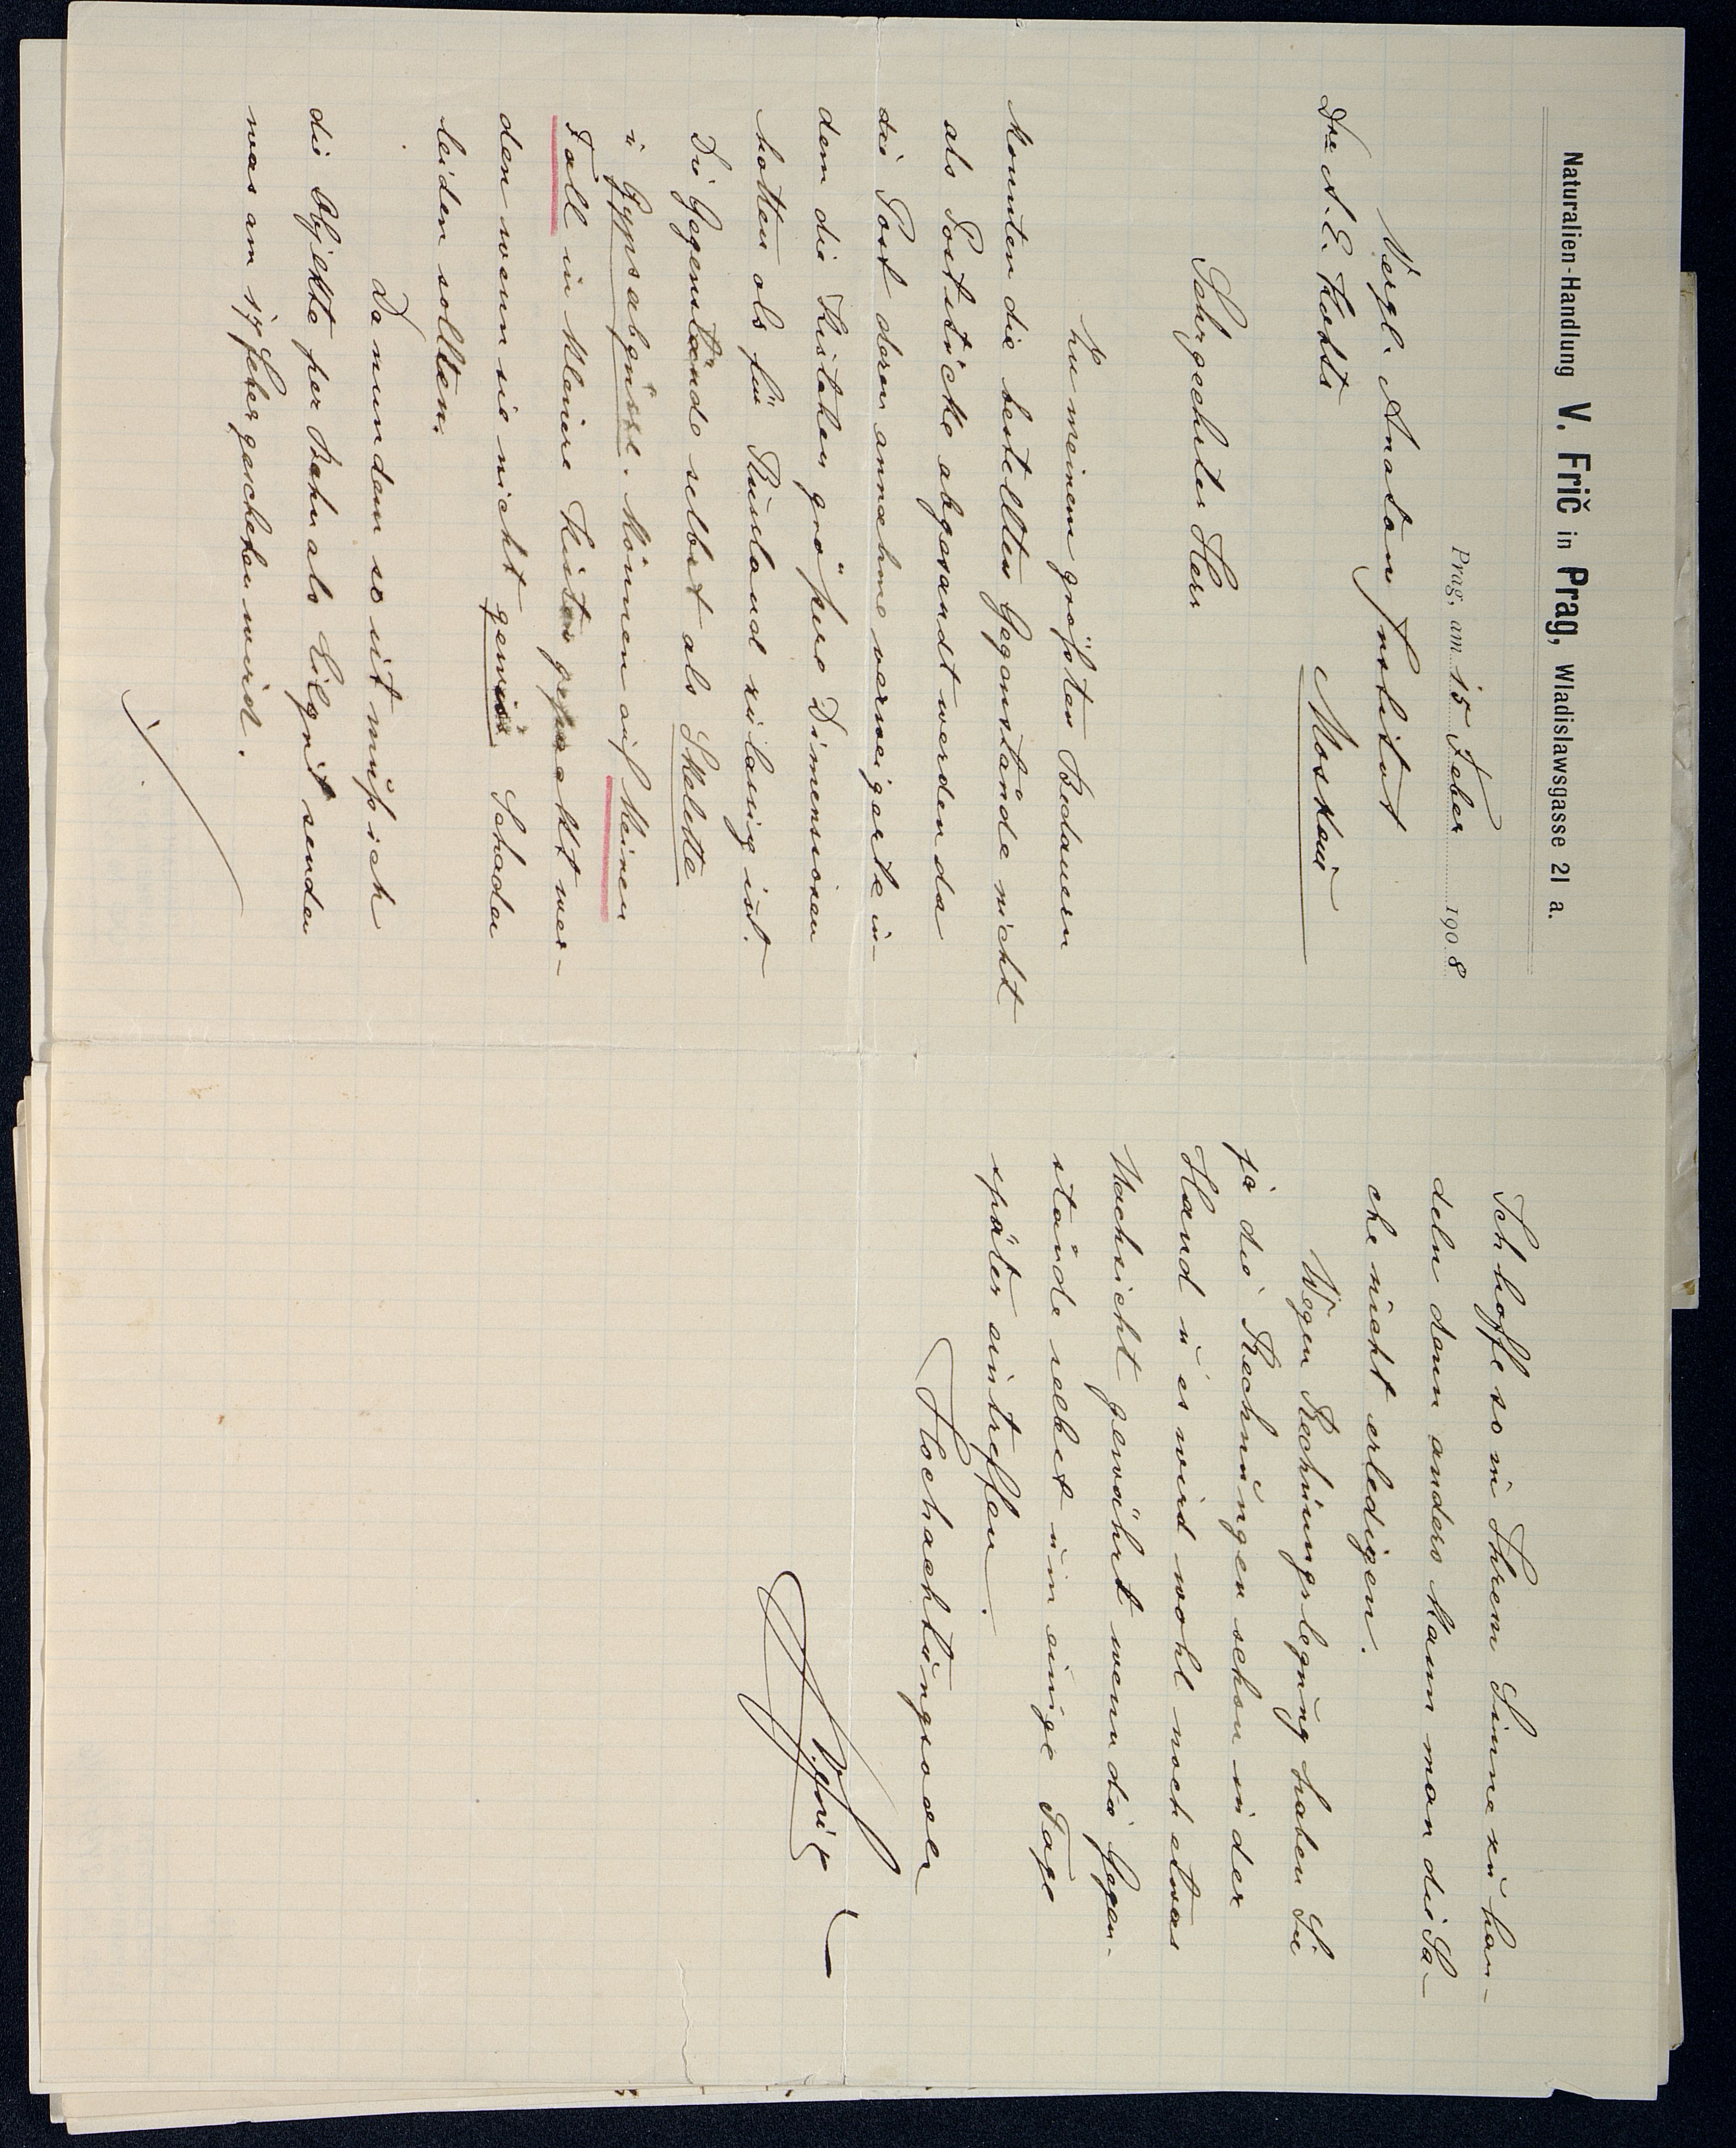 Naturalien-Handlung V. Frič in Prag, Wladislawsgasse 21 a.
Prag, am 15 Feber 1908
Vergl. Anatom Institut
Dre A. E. Kohts Moskau
Sehr geehrter Herr
Zu meinem gröſsten Bedauern
konnten die bestellten Gegenstände nicht
als Poststücke abgesandt werden da
die Post deren annahme verweigerte in-
dem die Kistchen gröſsere Dimensionen
hatten als für Russland zulässig ist.
Die Gegenstände selbst als Skelette
ü Gypsabgüsse. können auf keinen
Fall in kleinere Kisten gepackt wer-
den wenn sie nicht gewiss Schaden
leiden sollten.
Da nun dem so ist muſs ich
die Objekte per Bahn als Eilgut senden
was am 17 Feber geschehen wird.
Ich hoffe so in Ihrem Sinne zu han-
deln denn anders kann man die Sa-
che nicht erledigen.
Wegen Rechnungslegung haben Sie
ja die Rechnungen schon in der
Hand ü es wird wohl noch etwas
Nachsicht gewährt wenn die Gegen-
stände selbst um einige Tage
später eintreffen.
Hochachtungsvoll
V. Frič